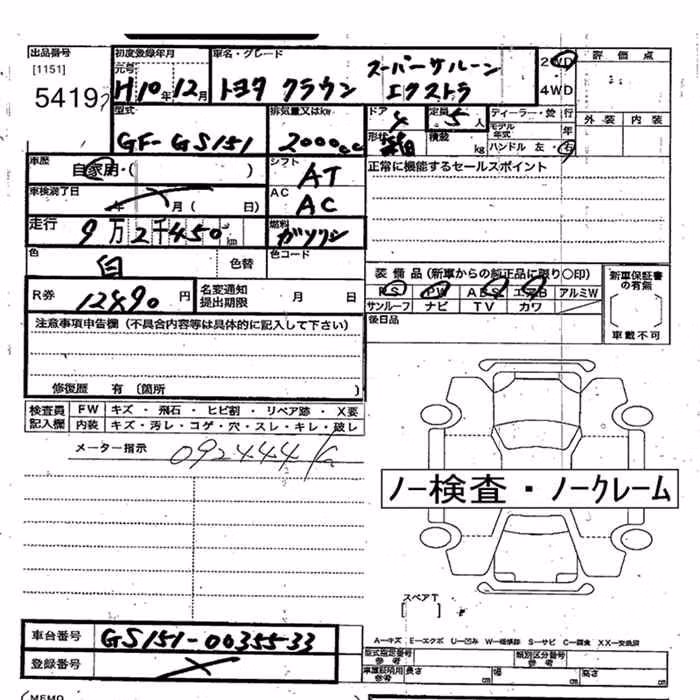 出品番号 初度登録年月 車名・グレード 2WD 評価点
[1151] 元号 スーパーサルーン
5419 H10年12月 トヨタ クラウン エクストラ 4WD
型式 排気量又はkw ドア 定員 ディーラー・並行 外装 内装
GF-GS151 2000cc 4 5人 モデル年式 年
形状 箱 積載 kg ハンドル 左・右
車歴 自家用・( ) シフト AT 正常に機能するセールスポイント
車検満了日 年 月( 日) AC AC
走行 9万2千450km 燃料 ガソリン
色 白 色替 色コード
装備品(新車からの純正品に限り○印) 新車保証書の有無
R券 12490円 名変通知提出期限 月 日 PS PW ABS エアB アルミW
サンルーフ ナビ TV カワ
注意事項申告欄(不具合内容等は具体的に記入して下さい) 後日品 車載不可
修復歴 有(箇所 )
検査員記入欄 FW キズ・飛石・ヒビ割・リペア跡・X要
内装 キズ・汚レ・コゲ・穴・スレ・キレ・破レ
メーター指示 092444 K
ノー検査・ノークレーム
スペアT
[ ]
車台番号 GS151-0035533 A-キズ E-エクボ U-凹み W-補修跡 S-サビ C-腐食 XX-交換済
登録番号 型式指定番号 参考 類別区分番号 参考
車庫証明用 参考 長さ cm 幅 cm 高さ cm
(MEMO